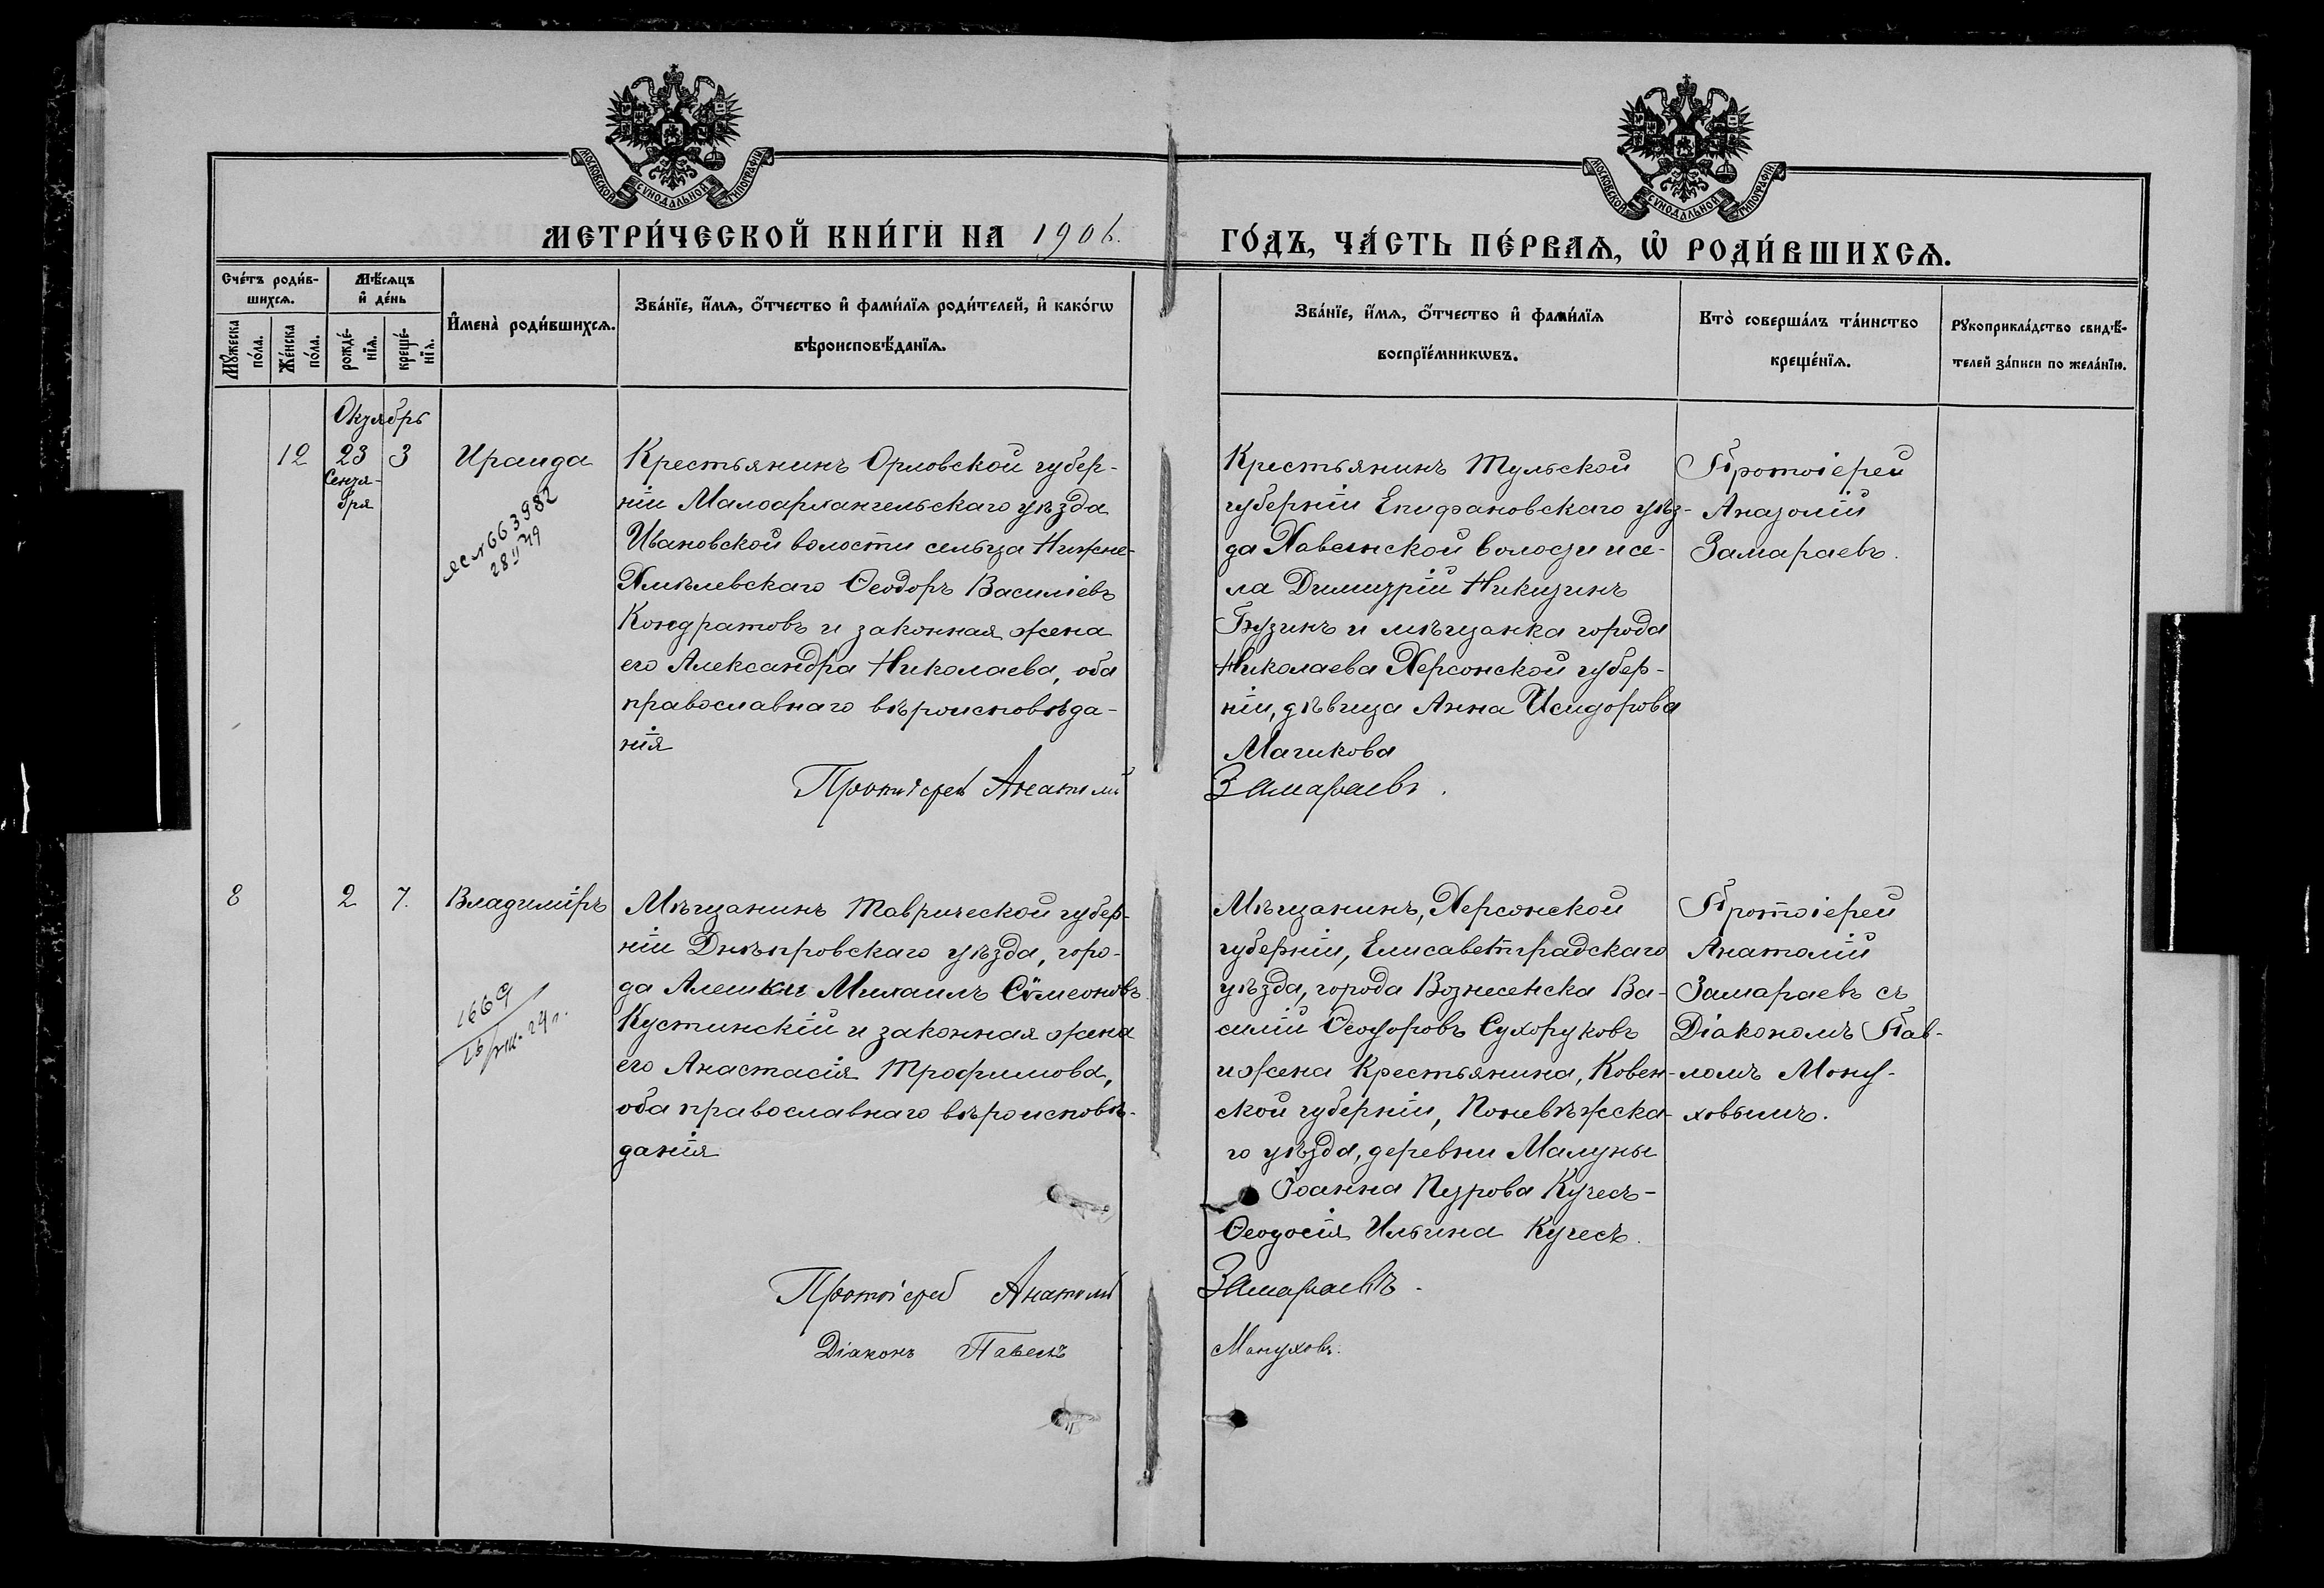 МОСКОВСКОЙ СУНОДАЛЬНОЙ ТИПОГРАФІИ
МОСКОВСКОЙ СУНОДАЛЬНОЙ ТИПОГРАФІИ
МЕТРИ́ЧЕСКОЙ КНИ́ГИ НА 1906.
ГО́ДЪ, ЧА́СТЬ ПЕ́РВАЯ, Ѡ РОДИ́ВШИХСЯ.
Сче́тъ роди́в-
шихся.
Мѣ́сяцъ
и де́нь
Мꙋ́жеска по́ла.
Же́нска по́ла.
рожде́-
нїя.
креще́-
нїя.
И҆мена̀ роди́вшихся.
Зва́нїе, и҆́мя, ѻ҆́тчество и҆ фами́лїя роди́телей, и҆ како́гѡ
вѣроисповѣ́данїя.
Зва́нїе, и҆́мя, ѻ҆́тчество и҆ фами́лїя
воспрїе́мникѡвъ.
Кто̀ соверша́лъ та́инство
креще́нїя.
Рꙋкоприкла́дство свидѣ́-
телей за́писи по жела́нїю.
Октябрь
12
23
Сентя-
бря
3
Ираида
663982
Крестьянинъ Орловской губер-
ніи Малоархангельскаго уѣзда
Ивановской волости сельца Нижне-
Хмѣлевскаго Ѳеодоръ Василіевъ
Кондратовъ и законная жена
его Александра Николаева, оба
православнаго вѣроисповѣда-
нія
Крестьянинъ Тульской
губерніи Епифановскаго уѣз-
да Хавенской волости и се-
ла Димитрій Никитинъ
Грузинъ и мѣщанка города
Николаева Херсонской губер-
ніи, дѣвица Анна Исидорова
Мачикова
Протоіерей
Анатолій
Замараевъ.
Протоіерей Анатолій
Замараевъ.
8
2
7.
Владиміръ
1669
Мѣщанинъ Таврической губер-
ніи Днѣпровскаго уѣзда, горо-
да Алешки Михаилъ Сѵмеоновъ
Кустинскій и законная жена
его Анастасія Трофимова,
оба православнаго вѣроисповѣ-
данія
Мѣщанинъ, Херсонской
губерніи, Елисаветградскаго
уѣзда, города Вознесенска Ва-
силій Ѳеодоровъ Сухоруковъ
и жена Крестьянина, Ковен-
ской губерніи, Поневѣжска-
го уѣзда, деревни Малуны
Іоанна Петрова Кучесъ-
Ѳеодосія Ильина Кучесъ.
Протоіерей
Анатолій
Замараевъ съ
Діакономъ Пав-
ломъ Мону-
ховымъ.
Протоіерей Анатолій
Замараевъ.
Діаконъ Павелъ
Монуховъ.